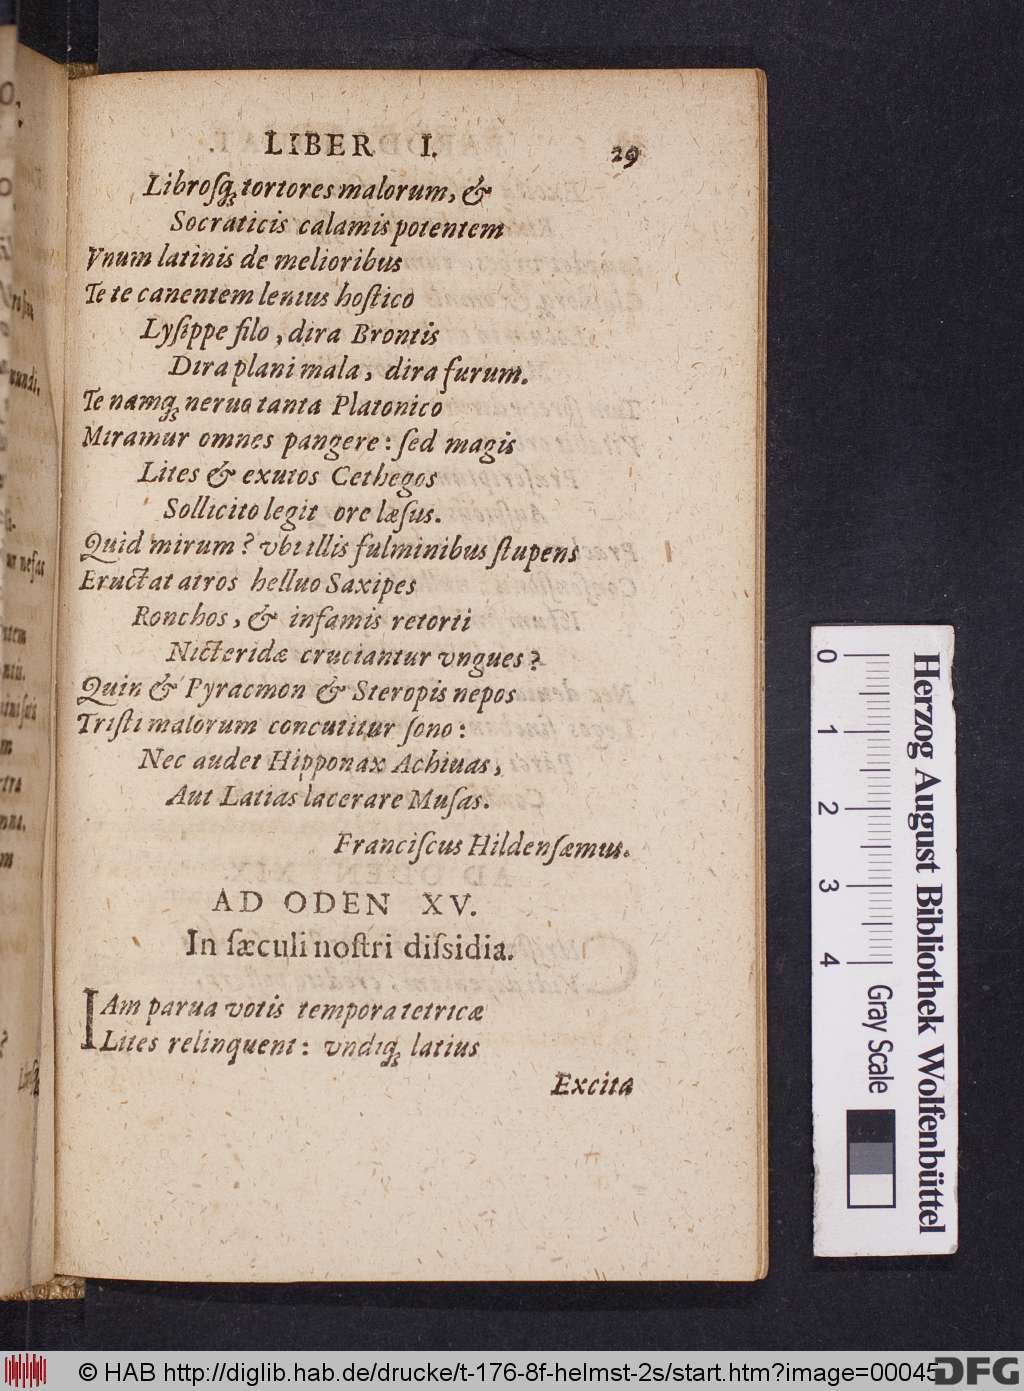 LIBER I. 29
Librosq; tortores malorum, &
Socraticis calamis potentem
Vnum latinis de melioribus
Te te canentem lenius hostico
Lysippe filo, dira Brontis
Dira plani mala, dira furum.
Te namq; neruo tanta Platonico
Miramur omnes pangere: sed magis
Lites & exutos Cethegos
Sollicito legit ore læsus.
Quid mirum? vbi illis fulminibus stupens
Eructat atros helluo Saxipes
Ronchos, & infamis retorti
Nicteridæ cruciantur vngues?
Quin & Pyracmon & Steropis nepos
Tristi malorum concutitur sono:
Nec audet Hipponax Achiuas,
Aut Latias lacerare Musas.
Franciscus Hildensæmus.
AD ODEN XV.
In sæculi nostri dissidia.
IAm parua votis tempora tetricæ
Lites relinquent: vndiq; latius
Excita
0 1 2 3 4
Gray Scale
Herzog August Bibliothek Wolfenbüttel
© HAB http://diglib.hab.de/drucke/t-176-8f-helmst-2s/start.htm?image=00045
DFG